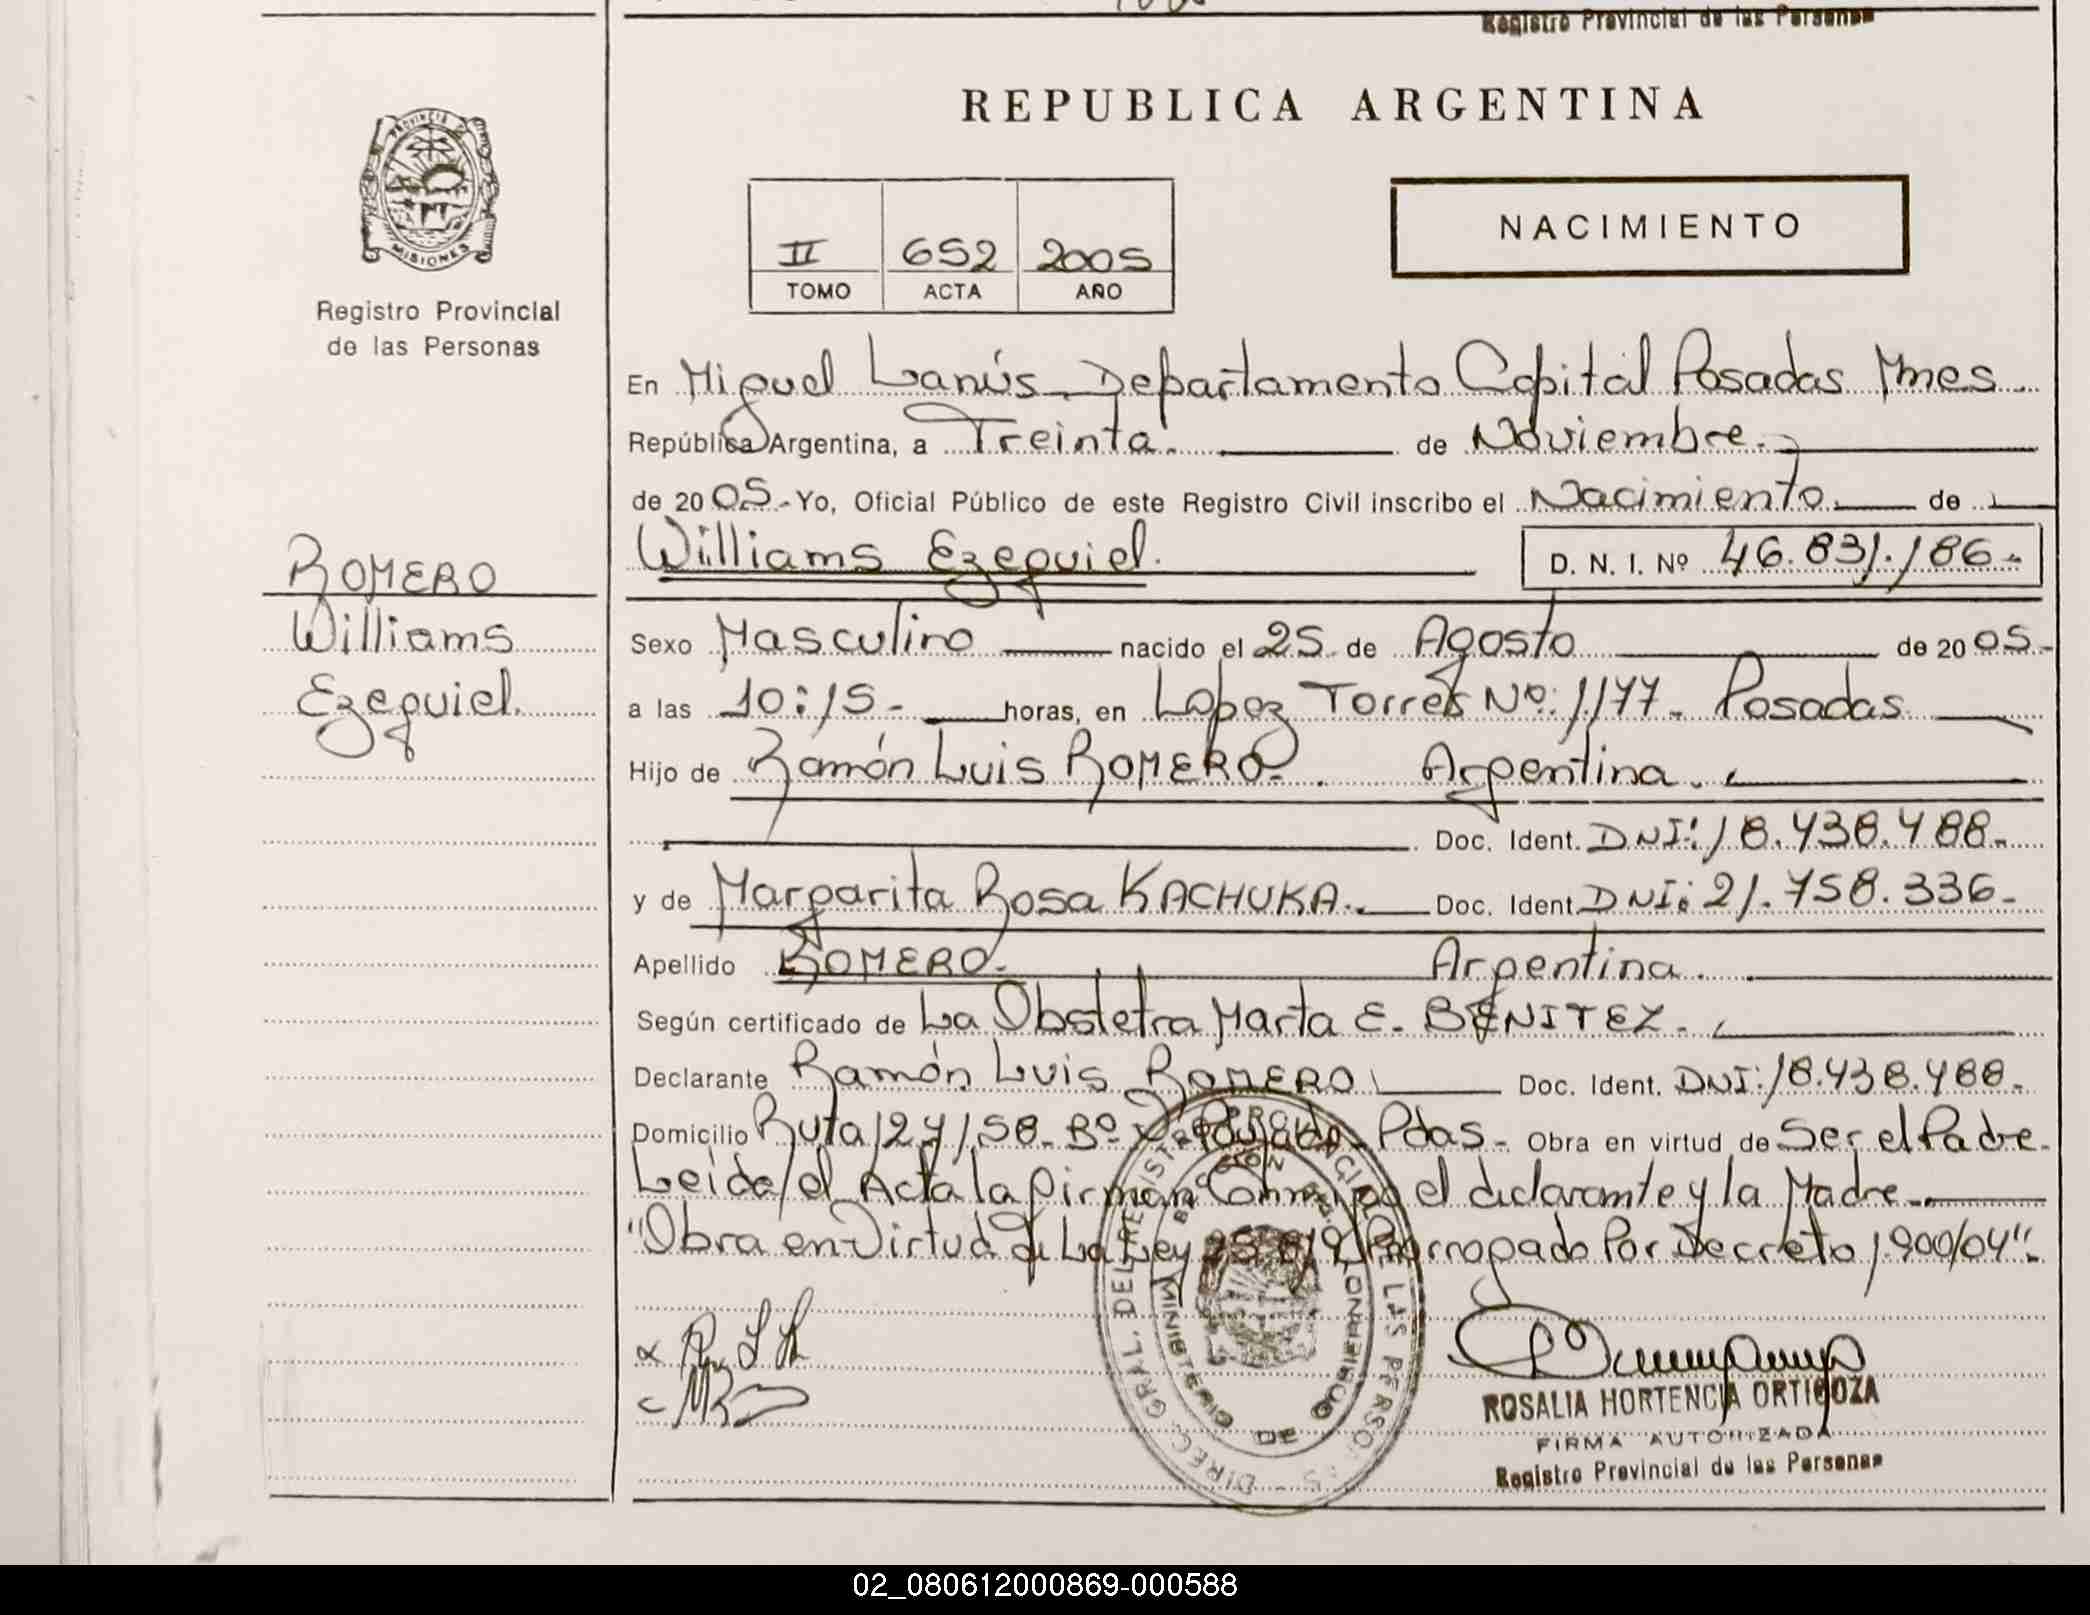 Registro Provincial de las Personas
REPUBLICA ARGENTINA
PROVINCIA DE
MISIONES
Registro Provincial
de las Personas
II 652 2005
TOMO ACTA AÑO
NACIMIENTO
En Miguel Lanús Departamento Capital Posadas Mnes
República Argentina, a Treinta. de Noviembre.
de 20 05.- Yo, Oficial Público de este Registro Civil inscribo el Nacimiento de
Williams Ezequiel. D. N. I. Nº 46.831.186.-
ROMERO
Williams
Ezequiel.
Sexo Masculino nacido el 25 de Agosto de 20 05.-
a las 10:15.- horas, en Lopez Torres Nº: 1177. Posadas
Hijo de Ramón Luis ROMERO.- Argentina.
Doc. Ident. DNI: 18.438.488.-
y de Margarita Rosa KACHUKA.- Doc. Ident. DNI: 21.758.336.-
Apellido ROMERO.- Argentina.
Según certificado de La Obstetra Marta E. BENITEZ.
Declarante Ramón Luis ROMERO Doc. Ident. DNI: 18.438.488.
Domicilio Ruta 12 y 158. Bº Pdas. Obra en virtud de Ser el Padre.
Leida el Acta la firman Conmigo el declarante y la Madre.
"Obra en Virtud de La Ley 25.819 Prorrogado Por Decreto 1.900/04".
DIREC. GRAL. DEL REGISTRO PROVINCIAL DE LAS PERSONAS
MINISTERIO DE GOBIERNO
ROSALIA HORTENCIA ORTIGOZA
FIRMA AUTORIZADA
Registro Provincial de las Personas
02_080612000869-000588